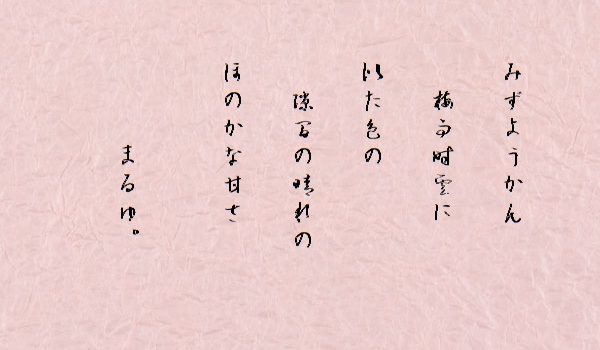 みずようかん
梅雨時雲に
似た色の
隙間の晴れの
ほのかな甘さ
まるゆ。